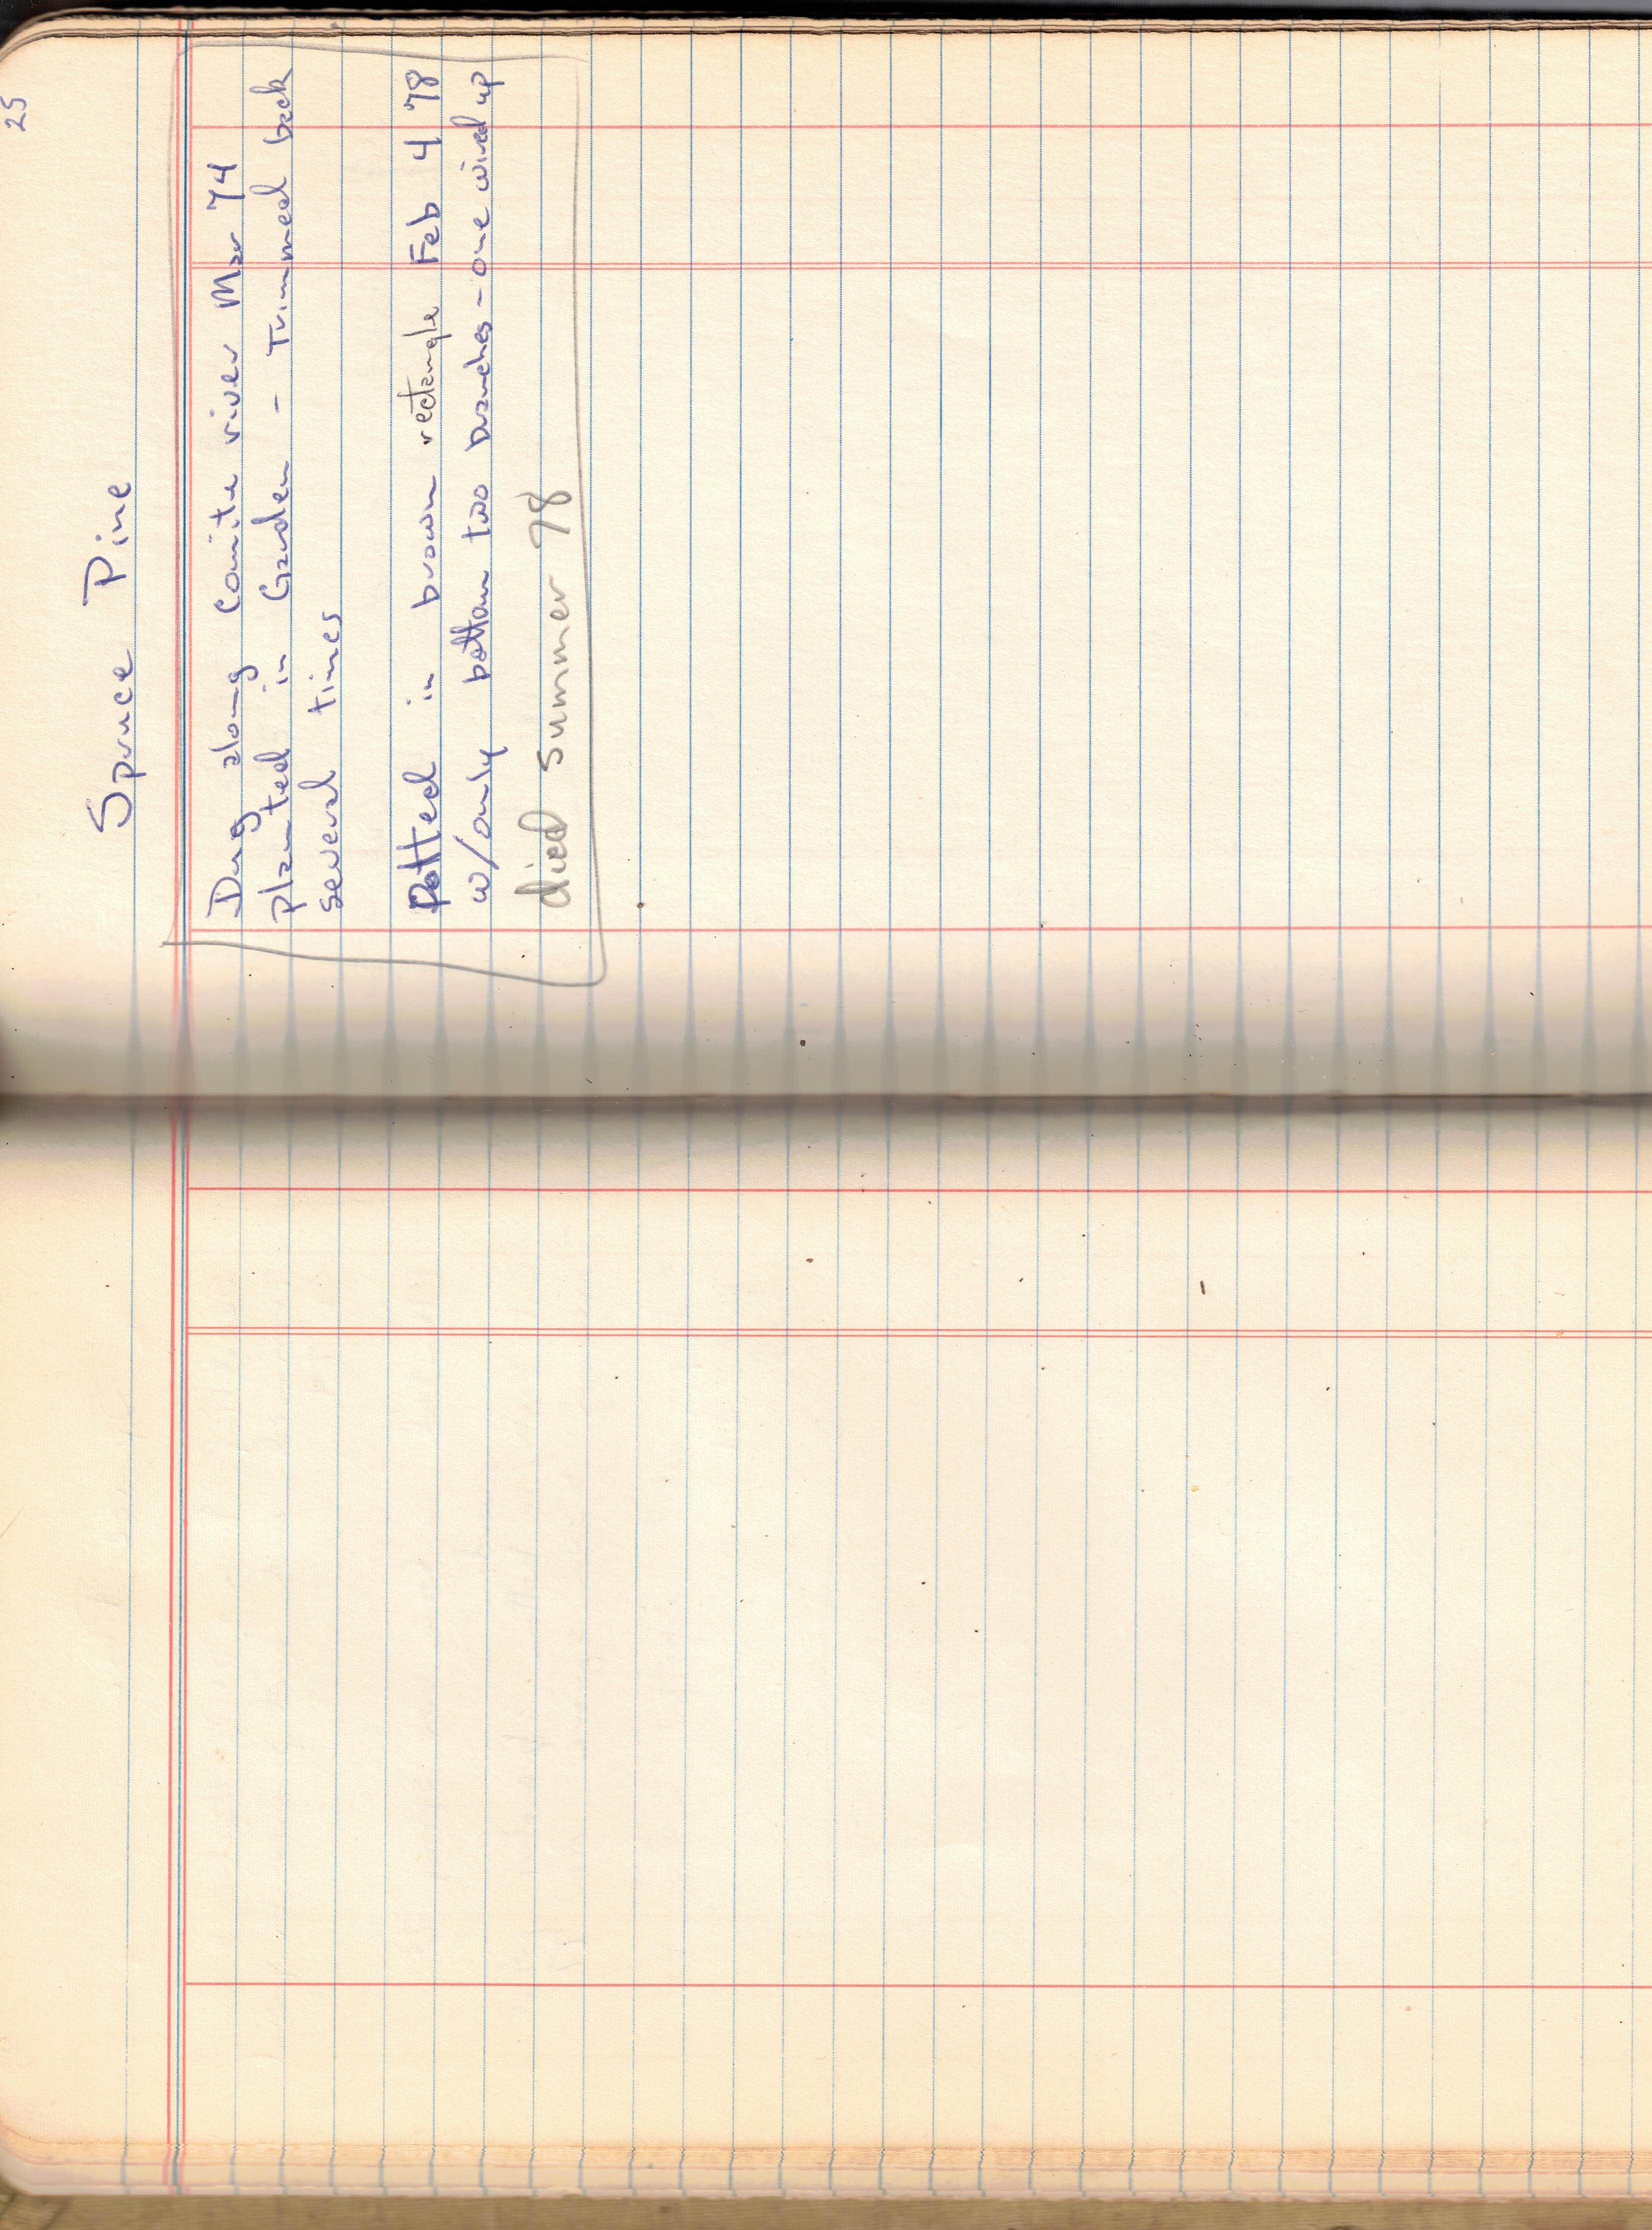 25
Spruce Pine
Dug along Comite river Mar 74
planted in Garden - Trimmed back
several times
Potted in brown rectangle Feb 4 78
w/only bottom two branches - one wired up
died summer 78